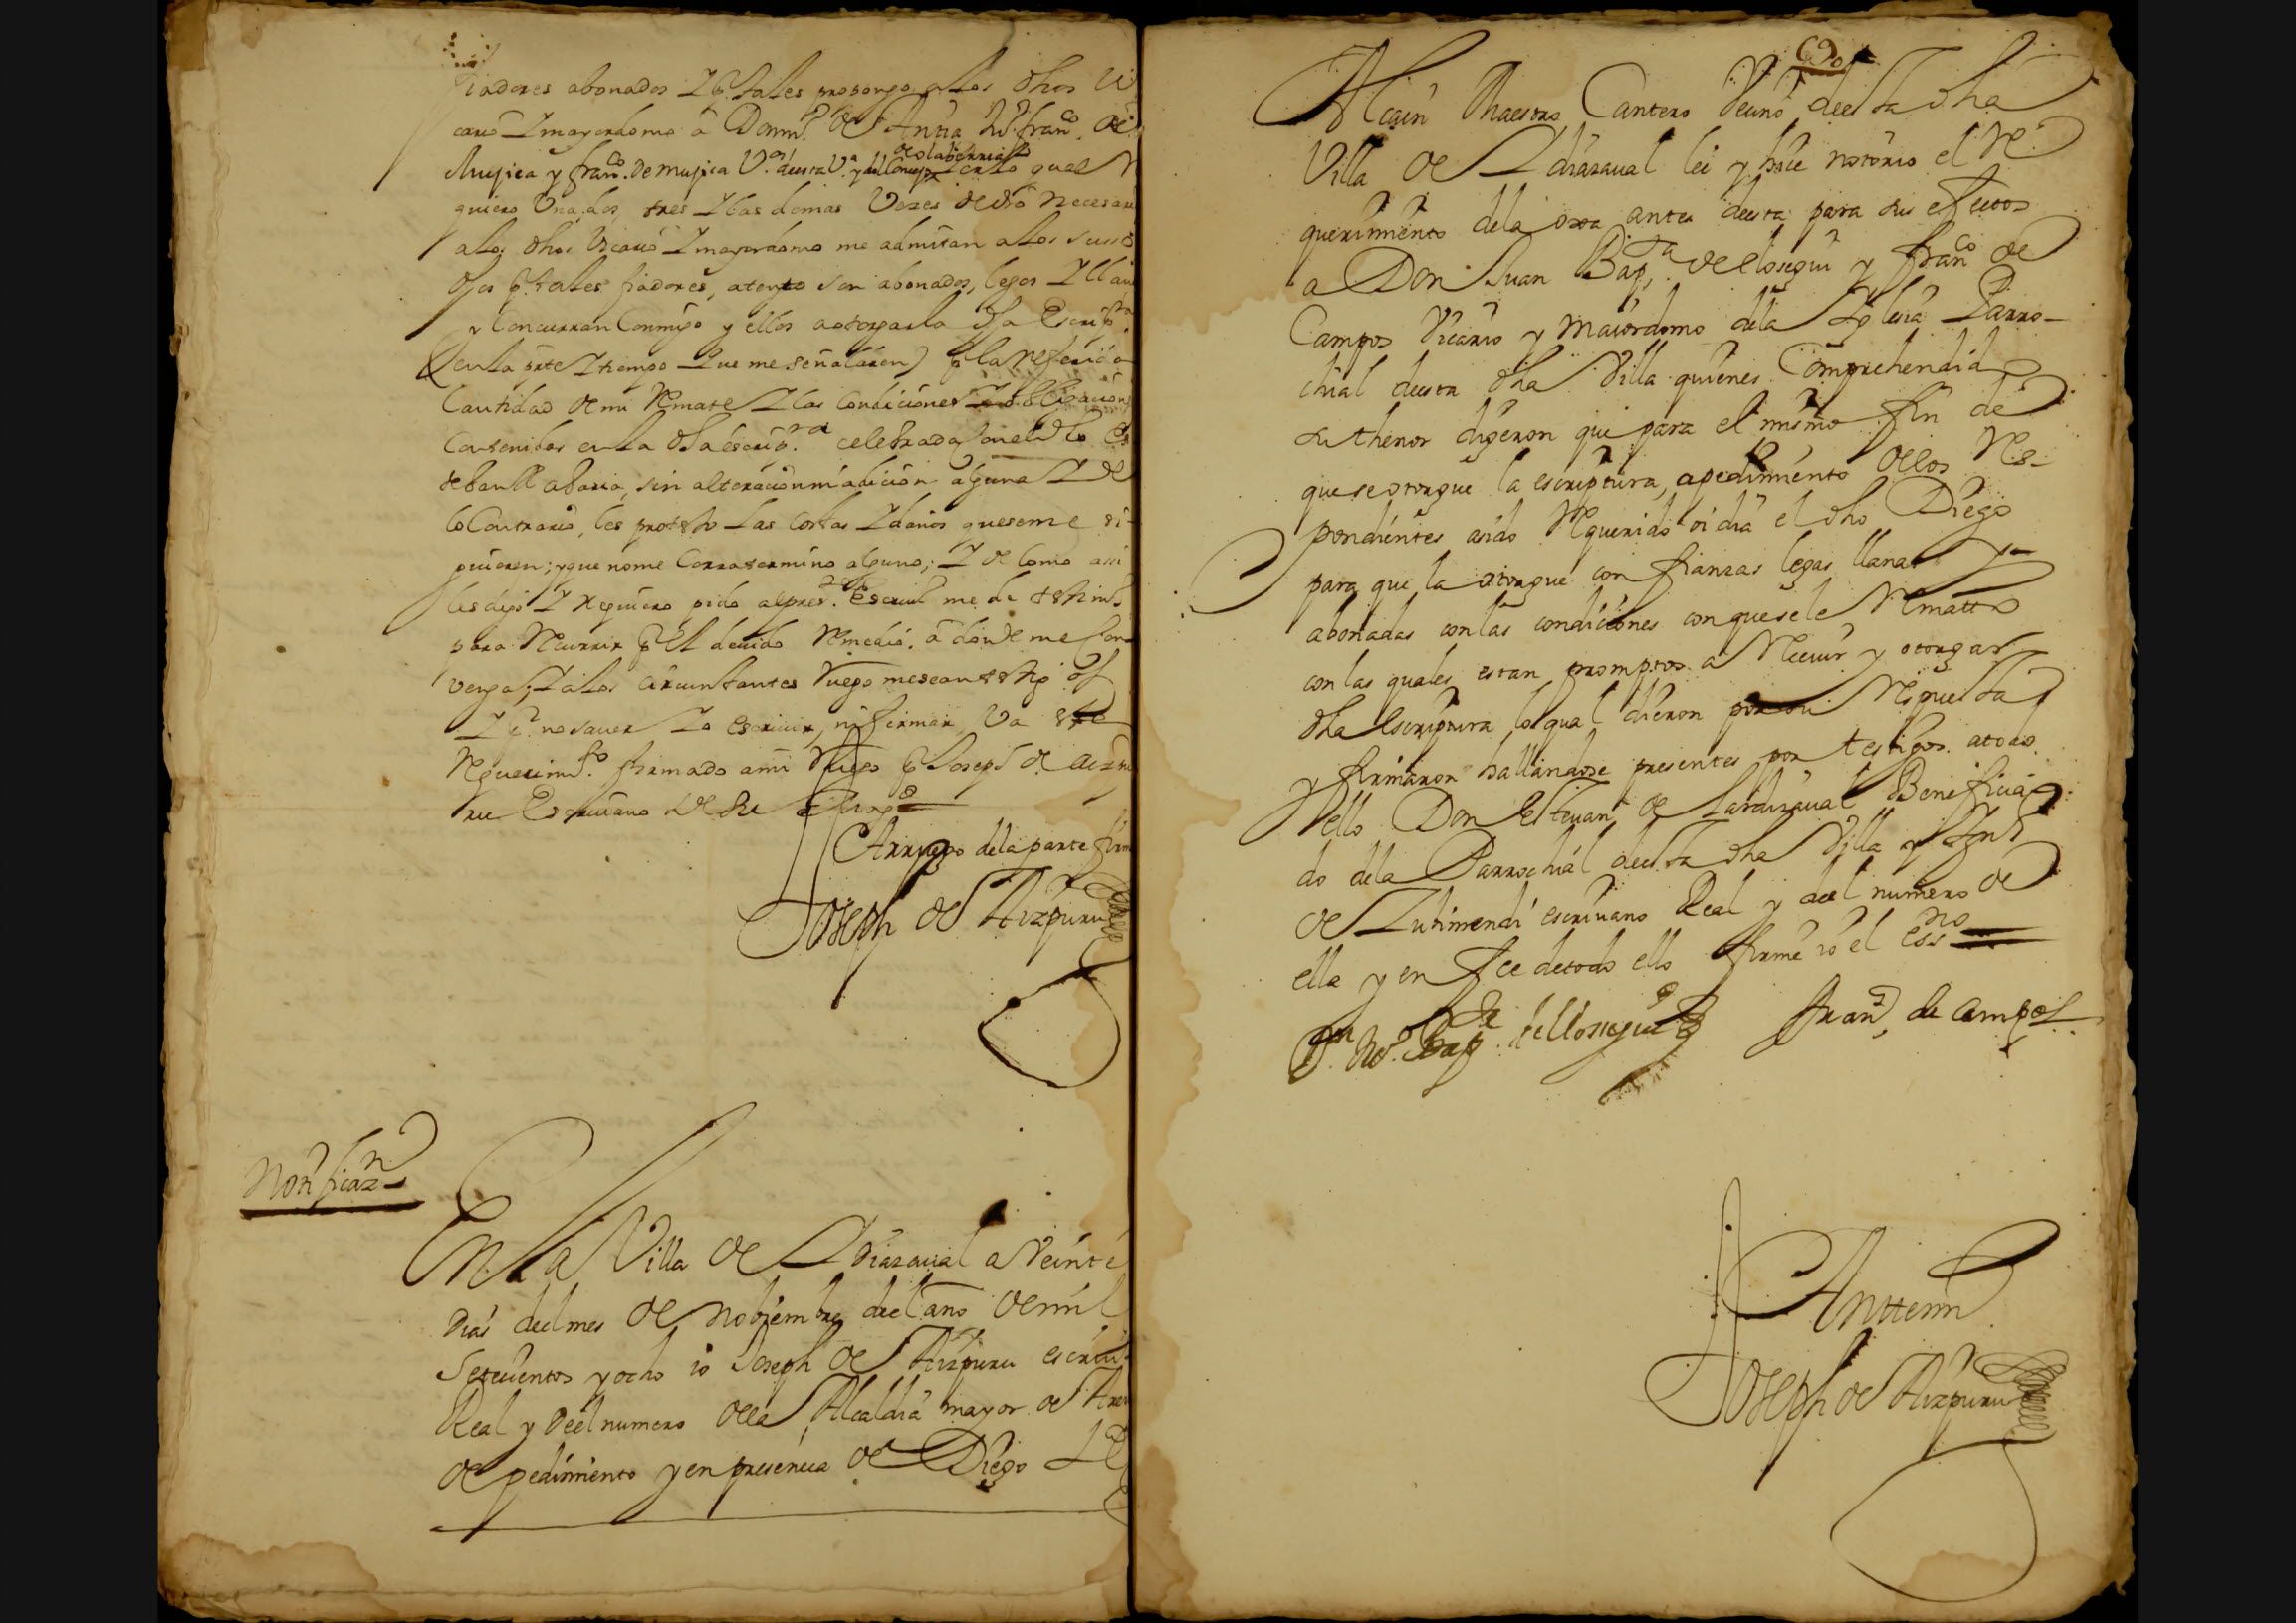 fiadores abonados Y p.r tales propongo a los dhos Vi
cario Y mayordomo â Dom.o de Anria Ju.o fran.co de
Mujica y fran.co de mujica V.os deesta V.a y del Concejo de olaberria Y en lo qual
quiero Una, dos, tres Y las demas Vezes de dro necesari
a los dhos Vicario Y mayordomo me admitan a los suso
dhos p.r tales fiadores, atento son abonados, legos Y llan
y Concurran Conmigo y ellos a otorgar la dha Escrip.ra
(en la parte Y tiempo Que me señalaren) p.r la referida
Cantidad de mi Remate Y las Condiciones Y obligacion
Contenidas en la dha escrip.ra celebrada
sin alteracion ni adicion alguna Y de
lo Contrario, les protesto Las Costas Y daños que se me si-
guieren; y que no me Corra termino alguno; Y de Como assi
les digo Y requiero pido al pres.te Escriu.o me de testim.o
para Recurrir p.r El deuido Remedio. â donde me Con
venga; Y a los circunstantes Ruego me sean testigos
Y p.r no sauer Yo Escriuir, ni firmar, Va este
Requerim.to firmado a mi Ruego p.r Joseph de aizpu
ru Escriuano
Arruego dela parte firm
Joseph de Aizpuru
Notificaz.n
En La Villa de Ydiazaual a Veinte
dias deel mes de nobiembre deel año de mil
Setecientos y ocho io Joseph de Aizpuru escriu.o
Real y deel numero de la Alcaldia mayor de Are
de pedimiento y en presencia de Diego
69
Alçain Maestro Cantero Veçino deesta dha
Villa de Ydiazaual lei y hice notorio el Re-
querimiento dela oxa antes deesta para sus efectos
a Don Juan Bap.ta de Ellosegui y fran.co de
Campos Vicario y maiordomo dela Iglesia Parro-
chial deesta dha Villa quienes Comprehendido
su thenor digeron que para el mismo fin de
que se otorgue la escriptura, a pedimiento de los Res-
pondientes a sido Requerido oi dia el dho Diego
para que la otorgue con fianzas legas llanas y
abonadas con las condiciones con que se le Remattó
con las quales estan promptos a Reciuir y otorgar
dha Escriptura lo qual dieron por su Respuesta
y firmaron hallandose presentes por testigos. a todo
ello Don Esteuan de Lardizaual Beneficia-
do dela Parrochial deesta dha Villa y
de Zurimendi escriuano Real y deel numero de
ella y en fee de todo ello firme io el ess.no
D.n Ju.o Bap.ta de Ellosegui fran.co de Campos
Antemi
Joseph de Aizpuru